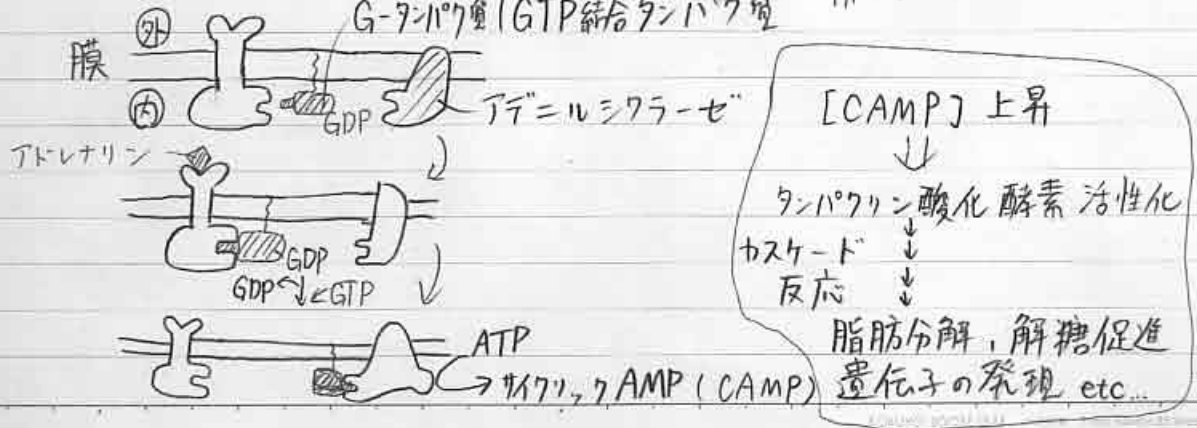 G-タンパク質(GTP結合タンパク質
外
膜
内
GDP
アデニルシクラーゼ
アドレナリン
GDP
GDP GTP
ATP
サイクリックAMP(CAMP)
[CAMP]上昇
タンパクリン酸化酵素活性化
カスケード
反応
脂肪分解、解糖促進
遺伝子の発現 etc...